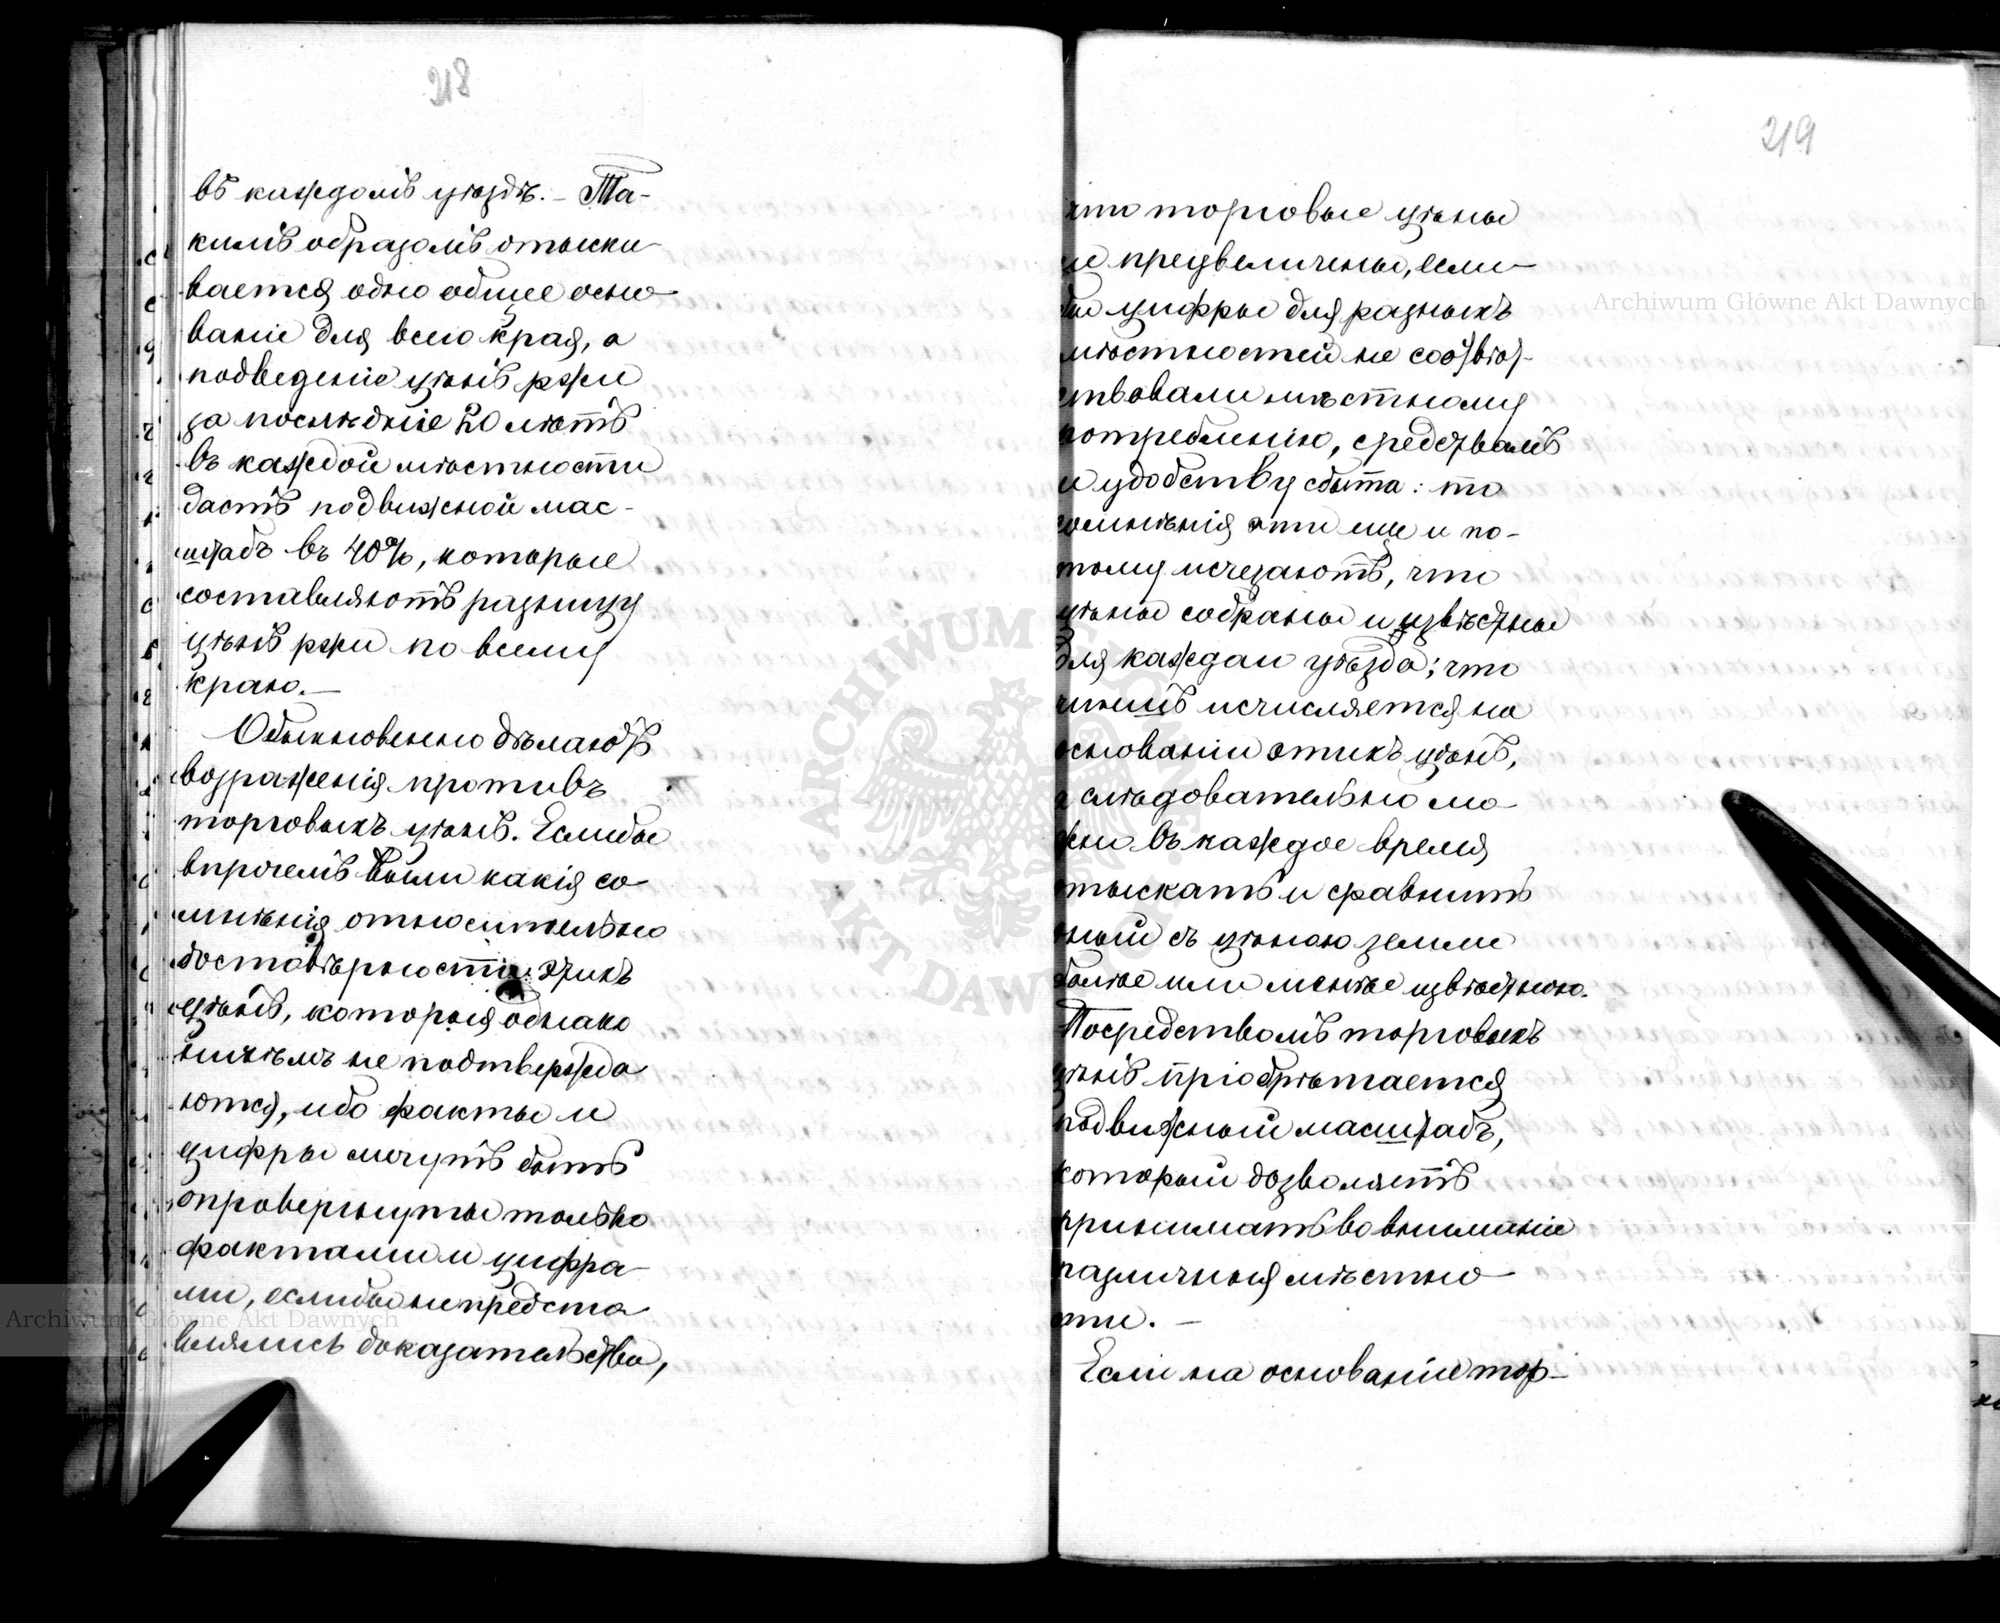 218
въ каждомъ уѣздѣ. – Та-
кимъ образомъ отыски-
вается одно общее осно-
ваніе для всего края, а
подведеніе цѣнъ ржи
за послѣдніе 20 лѣтъ
въ каждой мѣстности
дастъ подвижной мас-
штабъ въ 40%, которые
составляютъ разницу
цѣнъ ржи по всему
краю. –
Обыкновенно дѣлаютъ
возраженія противъ
торговыхъ цѣнъ. Если бы
впрочемъ были какія со-
мнѣнія относительно
достовѣрности этихъ
цѣнъ, которыя однако
ничѣмъ не подтвержда
ются, ибо факты и
цифры могутъ быть
опровергнуты только
фактами и цифра-
ми, если бы не предста
влялись доказательства,
219
что торговые цѣны
не преувеличены, если
бы цифры для разныхъ
мѣстностей не соотвѣт-
ствовали мѣстному
потребленію, средствамъ
и удобству сбыта: то
сомнѣнія эти еще и по-
тому исчезаютъ, что
цѣны собраны и извѣстны
для каждаго уѣзда; что
чиншъ исчисляется на
основаніи этихъ цѣнъ,
а слѣдовательно мо-
жно въ каждое время
отыскать и сравнить
оный съ цѣною земли
болѣе или менѣе извѣстною.
Посредствомъ торговыхъ
цѣнъ пріобрѣтается
подвижный масштабъ,
который дозволяетъ
принимать во вниманіе
различныя мѣстно-
сти. –
Если на основаніе тор-
Archiwum Główne Akt Dawnych
Archiwum Główne Akt Dawnych
ARCHIWUM GŁÓWNE AKT DAWNYCH